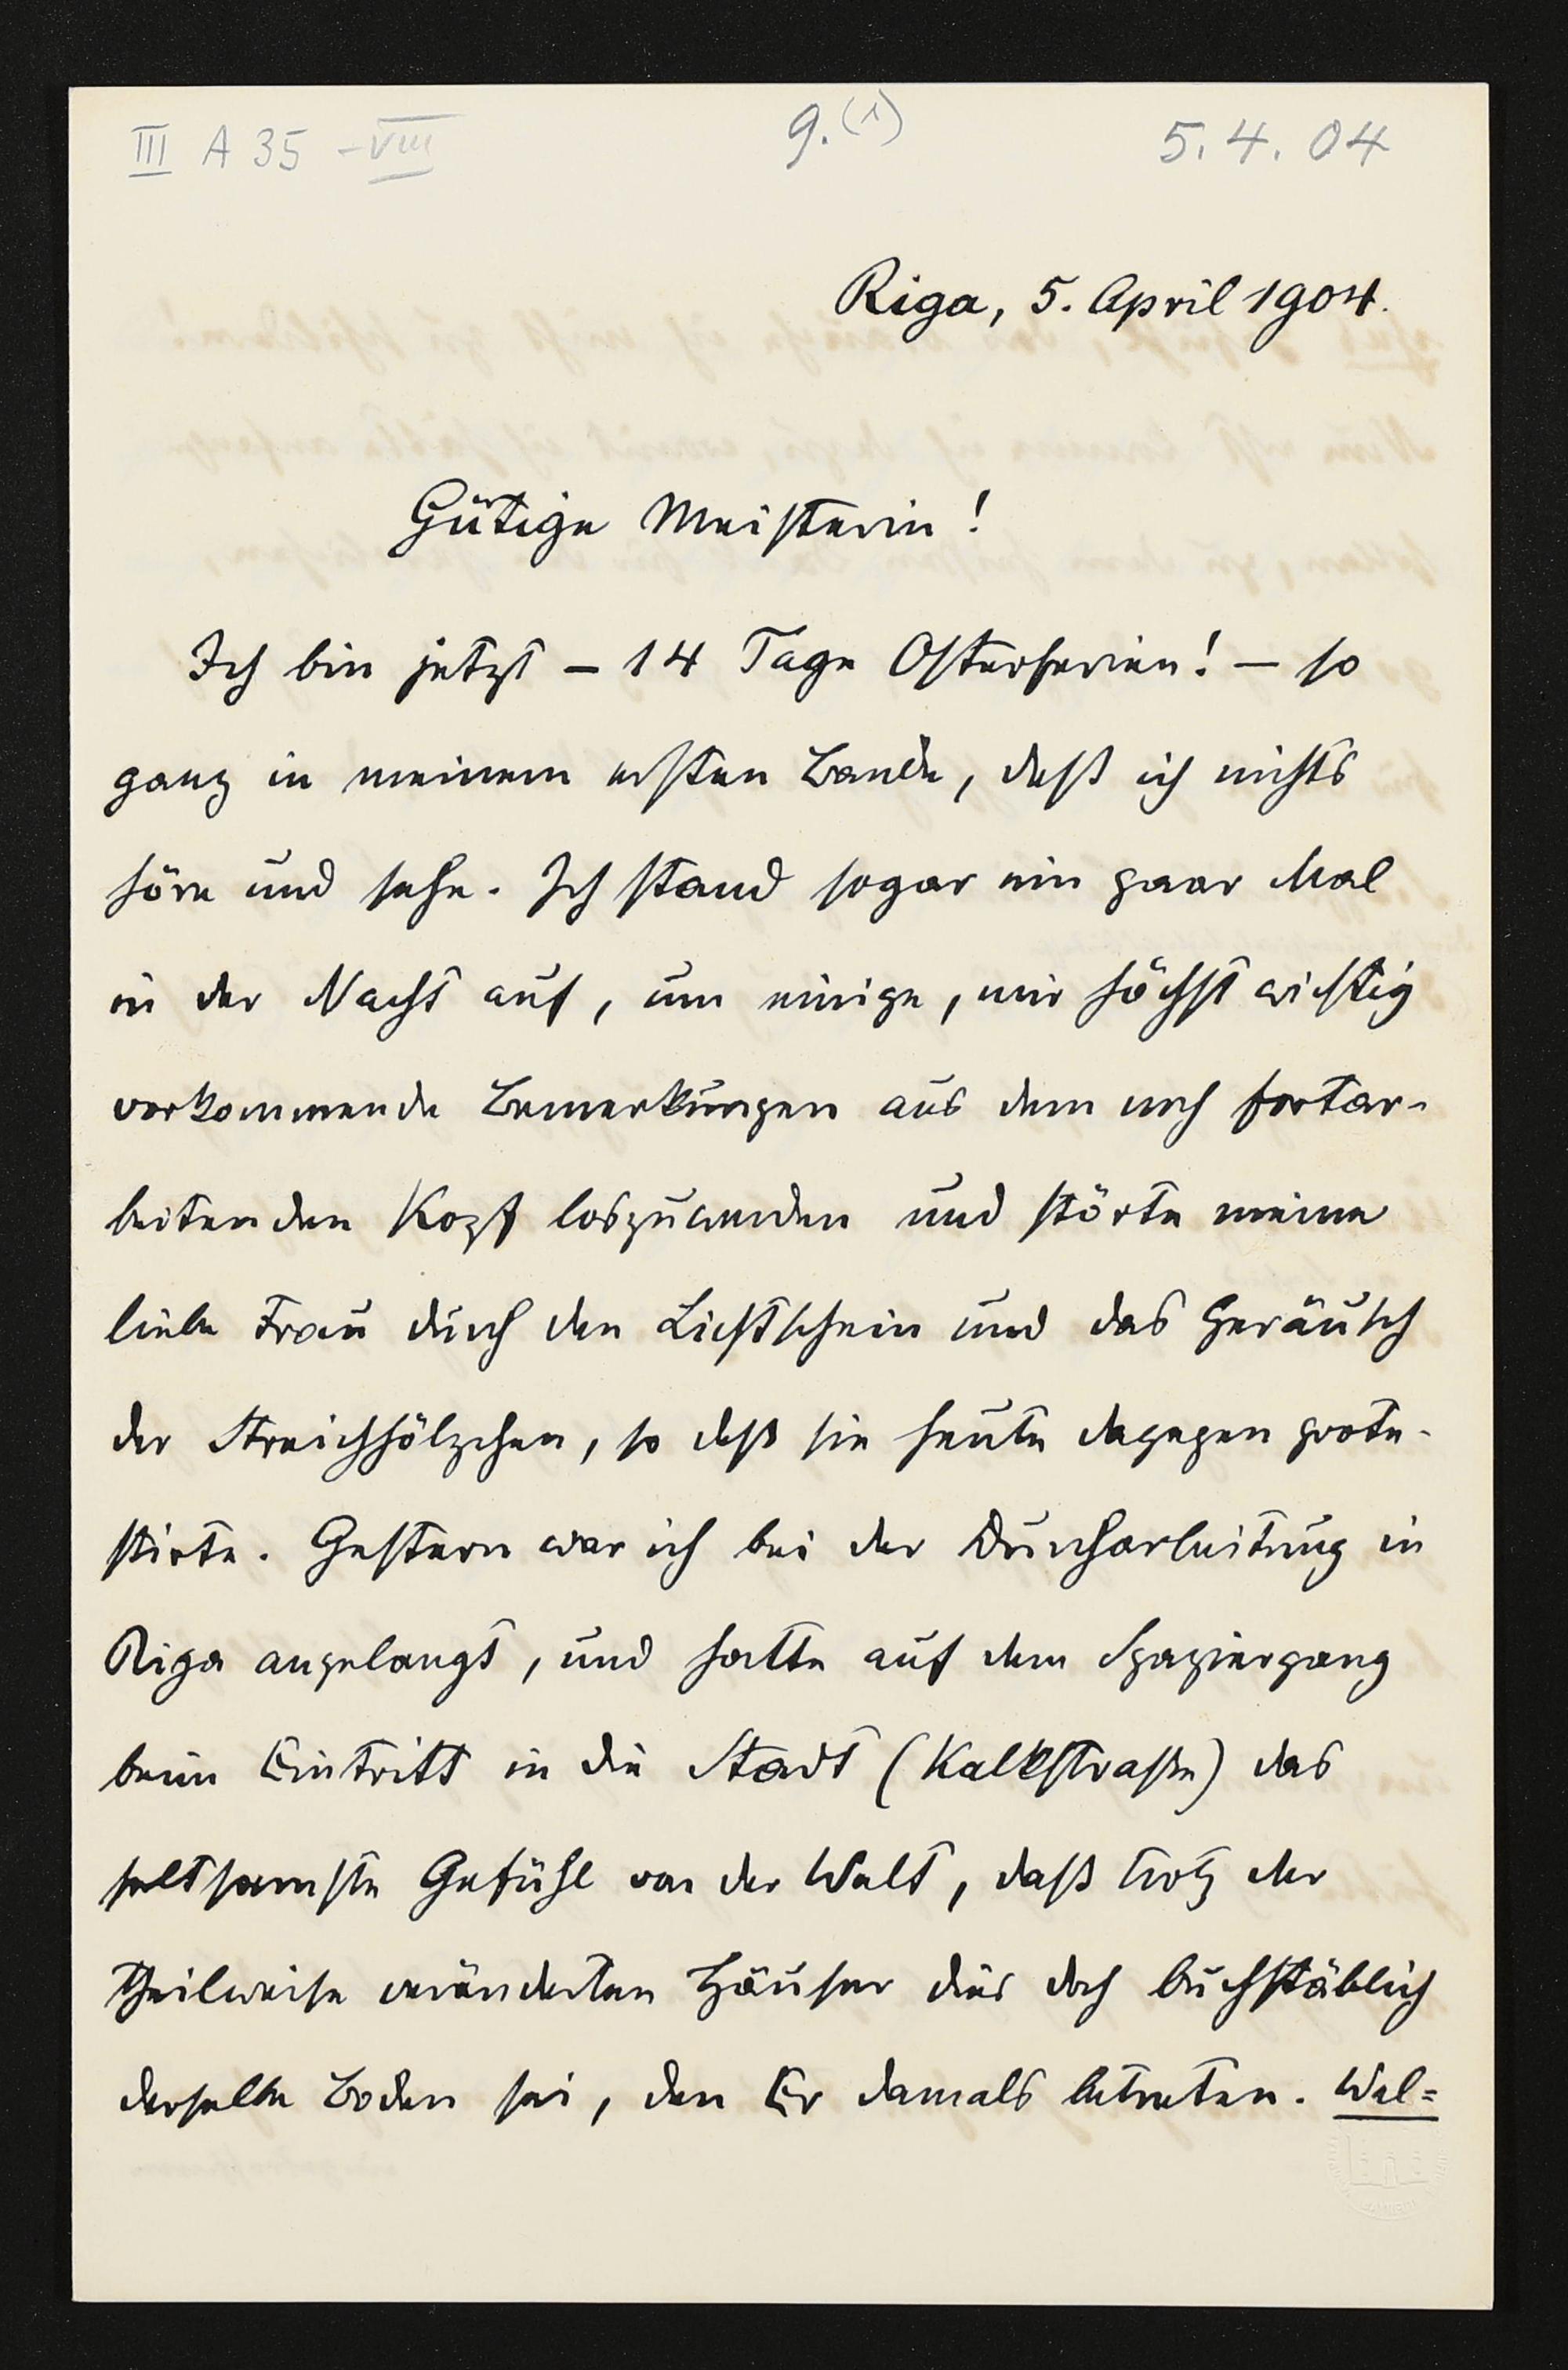 III A 35 - VIII
9.(1)
5.4.04
Riga, 5. April 1904.
Gütige Meisterin!
Ich bin jetzt – 14 Tage Osterferien! – so
ganz in meinem ersten Bande, daß ich nichts
höre und sehe. Ich stand sogar ein paar Mal
in der Nacht auf, um einige, mir höchst wichtig
vorkommende Bemerkungen aus dem noch fortar-
beitenden Kopf loszuwerden und störte meine
liebe Frau durch den Lichtschein und das Geräusch
der Streichhölzchen, so daß sie heute dagegen prote-
stirte. Gestern war ich bei der Durcharbeitung in
Riga angelangt, und hatte auf dem Spaziergang
beim Eintritt in die Stadt (Kalkstraße) das
seltsamste Gefühl von der Welt, daß trotz der
theilweise veränderten Häuser dies doch buchstäblich
derselbe Boden sei, den Er damals betreten. Wel=